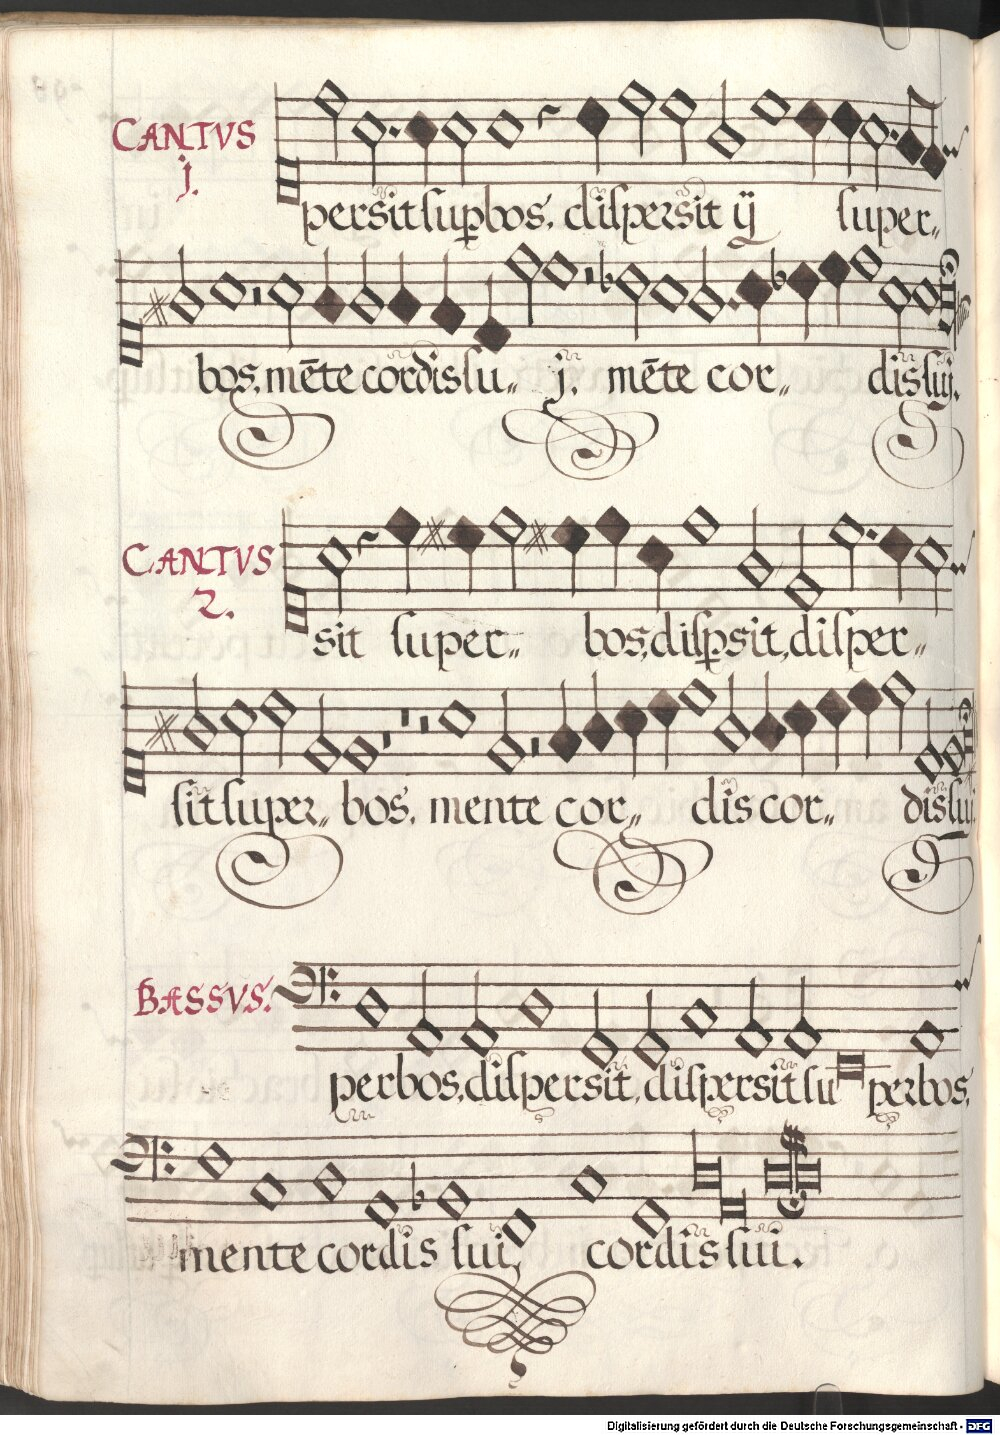 CANTVS
j.
persit sup̱bos, dispersit ij super„
bos, mēte cordis su„ ij. mēte cor„ dis suj.
CANTVS
2.
sit super„ bos, disp̱sit, disper„
sit super„ bos, mente cor„ dis cor„ dis sui
BASSVS.
perbos, dispersit, dispersit su perbos,
mente cordis sui, cordis sui.
Digitalisierung gefördert durch die Deutsche Forschungsgemeinschaft - DFG